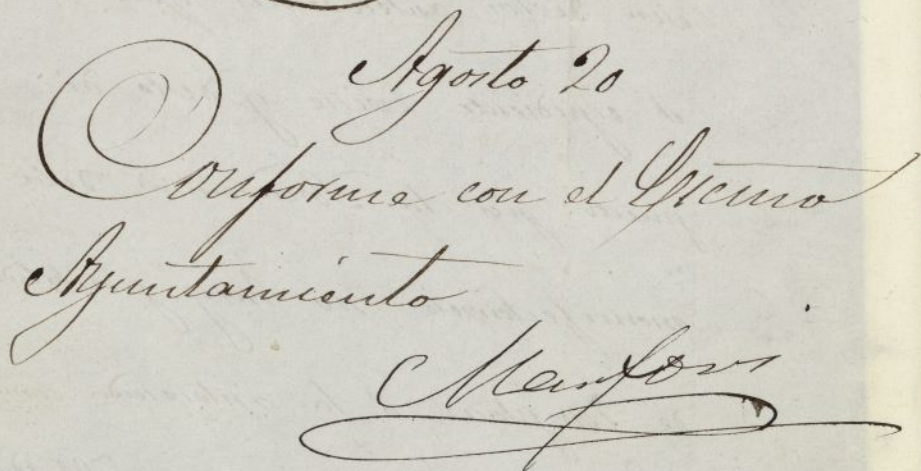 Agosto 20
Conforme con el Excmo
Ayuntamiento